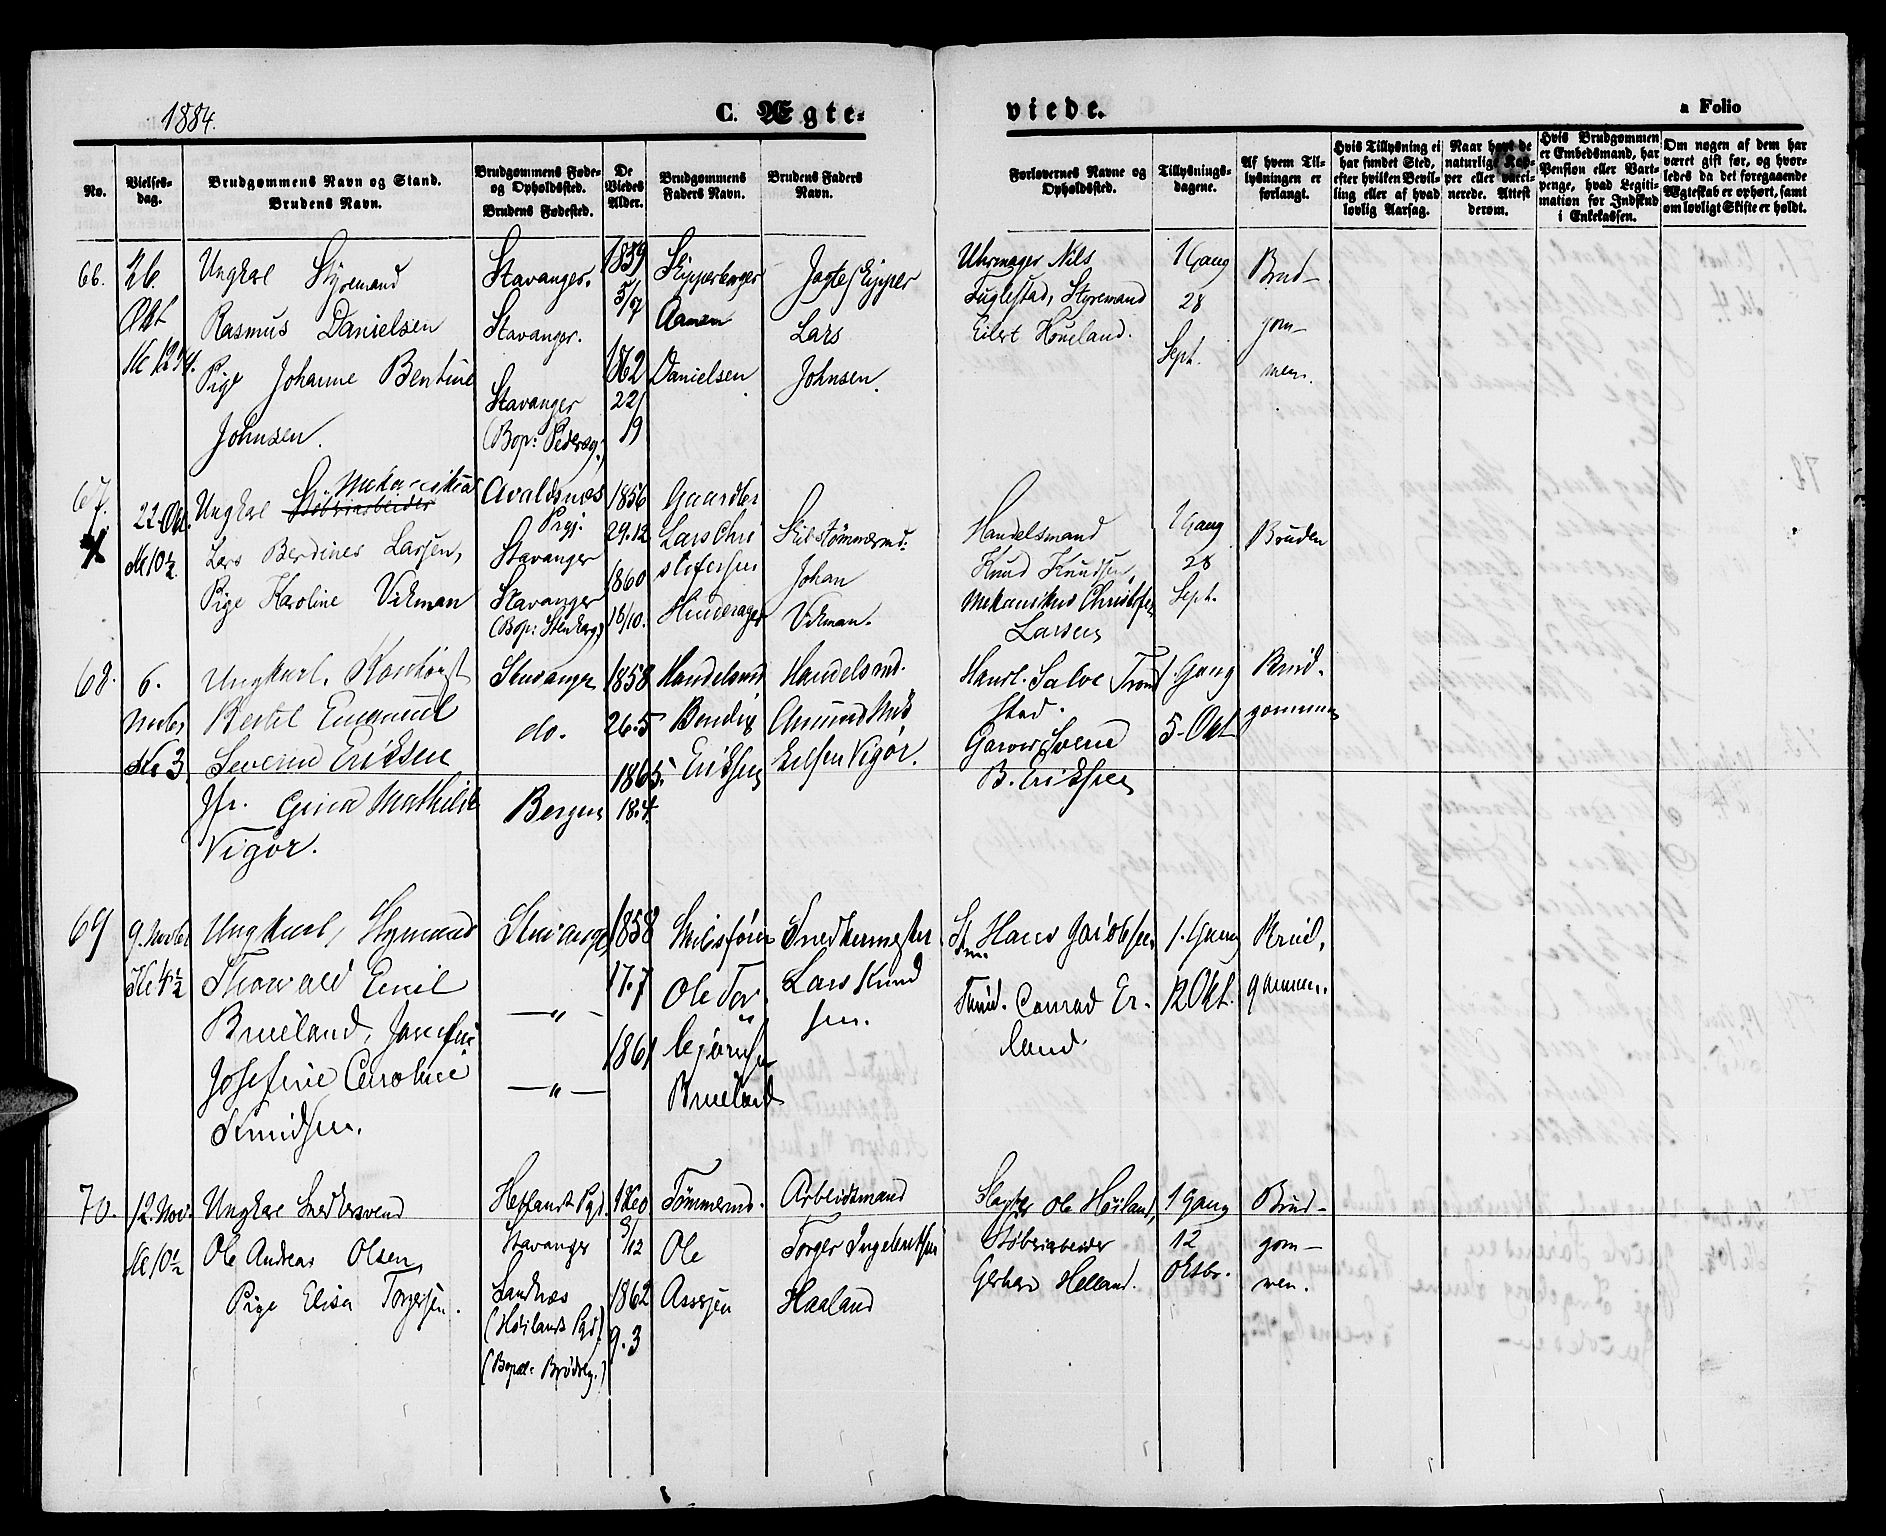 1884.
C. Ægte-
viede.
a Folio
No.
Vielses-
dag.
Brudgommens Navn og Stand.
Brudens Navn.
Brudgommens Føde-
og Opholdssted.
Brudens Fødested.
De
Viedes
Alder.
Brudgommens
Faders Navn.
Brudens Faders
Navn.
Forlovernes Navne og
Opholdssted.
Tillysnings-
dagene.
Af hvem Til-
lysningen er
forlangt.
Hvis Tillysning ei
har fundet Sted,
efter hvilken Bevil-
ling eller af hvad
lovlig Aarsag.
Naar havt de
naturlige Kop-
per eller vacci-
nerede. Attest
derom.
Hvis Brudgommen
er Embedsmand, har
Pension eller Vart-
penge, hvad Legiti-
mation for Indskud
i Enkekassen.
Om nogen af dem har
været gift før, og hvor-
ledes da det foregaaende
Ægteskab er ophørt, samt
om lovligt Skifte er holdt.
66.
26.
Okt
Ungkar Styrmand
Rasmus Danielsen
Pige Johanne Bentine
Johnsen.
Stavanger.
Stavanger.
Stavanger
(Bop: Pedersg.)
1859
5/7
1862
22/
19
Aanen
Danielsen
Jagteskipper
Lars
Johnsen.
Uhrmager Nils
Fuglestad, Styrmand
Eilert Houeland.
1 Gang
28
Sept.
Brud-
gom-
men.
67.
22 Okt.
Kl 10½.
Ungkar Støberiarbeider
Mekanikus
Lars Berdines Larsen,
Pige Karoline Vikman
Avaldsnes
Prgj.
Stavanger
Stavanger
(Bop: Stenkag.)
1856
29.12
1860
18/10.
Gaardbr
Lars Chri
stofersen
Hinderager
Skibstømmermd.
Johan
Vikman.
Handelsmand
Knud Knudsen,
Mekanikus Christofer
Larsen
1 Gang
28
Sept.
Bruden
68.
6.
Novbr,
Kl 3
Ungkarl, Kontorist
Bertel Emanuel
Severin Eriksen
Jfr. Gina Mathilde
Vigør.
Stavanger
do.
Bergen
1858
26.5
1865.
18.4.
Handelsmd
Bendix
Eriksen
Handelsmd.
Eelsen Vigør.
Hanrl. Salve Trond
stad.
Garver Svend
B. Eriksen
1 Gang
5. Okt
Brud.
gommen
69
9. Novbr
Kl 4½
Ungkarl, Styrmand
Thorvald Emil
Brueland, Jomfru
Josefine Caroline
Knudsen.
Stavanger
— " —
— " —
1858
17.7
1861
Skibsfører
Ole Tor
bjørnsen
Brueland
Snedkermester
Lars Knud
sen.
Stm. Hans Jacobsen
Conrad Er-
land.
1. Gang
12 Okt.
Brud,
gommen.
70.
12. Nov.
Kl 10½
Ungkar Snedkersvend
Ole Andreas Olsen,
Pige Elisa Torgersen.
Hetlands Pgd.
Stavanger
Sandnæs
(Høilands Pgd)
(Bopæl: Brødreg.)
1860
3/12
1862
9.3
Tømmermd.
Ole
Assersen
Arbeidsmand
Torger Ingebretsen
Haaland
Slagter Ole Høiland,
Støberiarbeider
Gerhard Helland.
1 Gang
12
Oktbr.
Brud-
gom-
men.